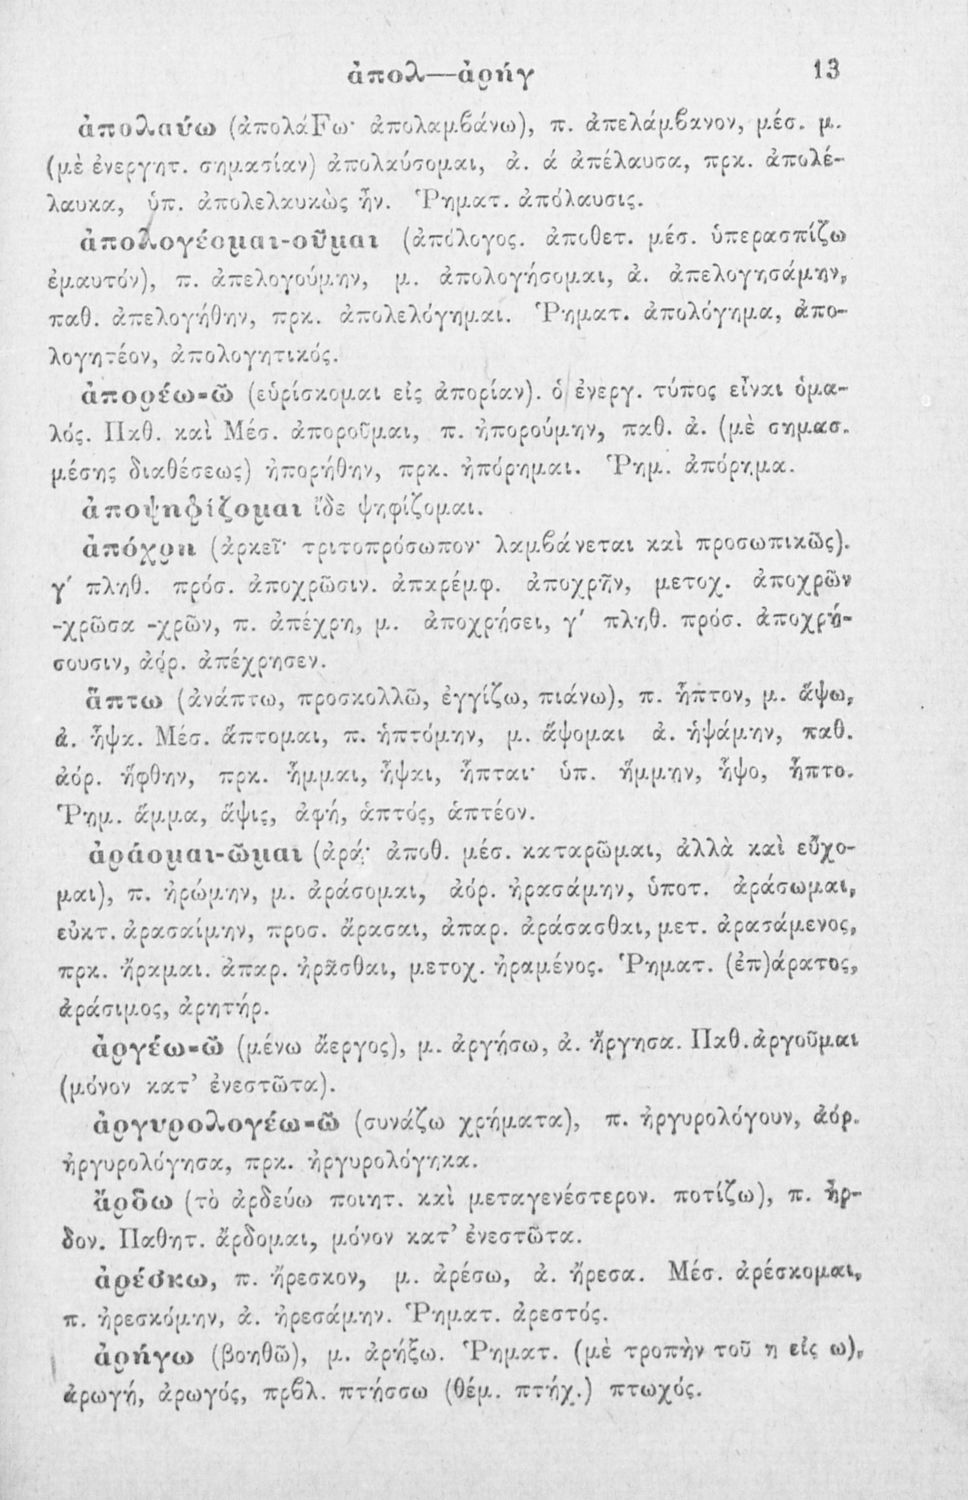 ἀπολ—ἀρήγ 13
ἀπολαύω (ἀπολάFω· ἀπολαμβάνω), π. ἀπελάμβανον, μέσ. μ.
(μὲ ἐνεργητ. σημασίαν) ἀπολαύσομαι, ἀ. ά ἀπέλαυσα, πρκ. ἀπολέ-
λαυκα, ὑπ. ἀπολελαυκὼς ἦν. Ῥηματ. ἀπόλαυσις.
ἀπολογέομαι-οῦμαι (ἀπόλογος. ἀποθετ. μέσ. ὑπερασπίζω
ἐμαυτόν), π. ἀπελογούμην, μ. ἀπολογήσομαι, ἀ. ἀπελογησάμην,
παθ. ἀπελογήθην, πρκ. ἀπολελόγημαι. Ῥηματ. ἀπολόγημα, ἀπο-
λογητέον, ἀπολογητικός.
ἀπορέω-ῶ (εὑρίσκομαι εἰς ἀπορίαν). ὁ ἐνεργ. τύπος εἶναι ὁμα-
λός. Παθ. καὶ Μέσ. ἀποροῦμαι, π. ἠπορούμην, παθ. ἀ. (μὲ σημασ.
μέσης διαθέσεως) ἠπορήθην, πρκ. ἠπόρημαι. Ῥημ. ἀπόρημα.
ἀποψηφίζομαι ἴδε ψηφίζομαι.
ἀπόχρη (ἀρκεῖ· τριτοπρόσωπον· λαμβάνεται καὶ προσωπικῶς).
γ′ πληθ. πρόσ. ἀποχρῶσιν. ἀπαρέμφ. ἀποχρῆν, μετοχ. ἀποχρῶν
-χρῶσα -χρῶν, π. ἀπέχρη, μ. ἀποχρήσει, γ′ πληθ. πρόσ. ἀποχρή-
σουσιν, ἀόρ. ἀπέχρησεν.
ἅπτω (ἀνάπτω, προσκολλῶ, ἐγγίζω, πιάνω), π. ἧπτον, μ. ἅψω,
ἀ. ἧψα. Μέσ. ἅπτομαι, π. ἡπτόμην, μ. ἅψομαι ἀ. ἡψάμην, παθ.
ἀόρ. ἥφθην, πρκ. ἧμμαι, ἧψαι, ἧπται· ὑπ. ἥμμην, ἧψο, ἧπτο.
Ῥημ. ἅμμα, ἅψις, ἁφή, ἁπτός, ἁπτέον.
ἀράομαι-ῶμαι (ἀρά· ἀποθ. μέσ. καταρῶμαι, ἀλλὰ καὶ εὔχο-
μαι), π. ἠρώμην, μ. ἀράσομαι, ἀόρ. ἠρασάμην, ὑποτ. ἀράσωμαι,
εὐκτ. ἀρασαίμην, προσ. ἄρασαι, ἀπαρ. ἀράσασθαι, μετ. ἀρασάμενος,
πρκ. ἤραμαι. ἀπαρ. ἠρᾶσθαι, μετοχ. ἠραμένος. Ῥηματ. (ἐπ)άρατος,
ἀράσιμος, ἀρητήρ.
ἀργέω-ῶ (μένω ἄεργος), μ. ἀργήσω, ἀ. ἤργησα. Παθ. ἀργοῦμαι
(μόνον κατ’ ἐνεστῶτα).
ἀργυρολογέω-ῶ (συνάζω χρήματα), π. ἠργυρολόγουν, ἀόρ.
ἠργυρολόγησα, πρκ. ἠργυρολόγηκα.
ἄρδω (τὸ ἀρδεύω ποιητ. καὶ μεταγενέστερον. ποτίζω), π. ἦρ-
δον. Παθητ. ἄρδομαι, μόνον κατ’ ἐνεστῶτα.
ἀρέσκω, π. ἤρεσκον, μ. ἀρέσω, ἀ. ἤρεσα. Μέσ. ἀρέσκομαι,
π. ἠρεσκόμην, ἀ. ἠρεσάμην. Ῥηματ. ἀρεστός.
ἀρήγω (βοηθῶ), μ. ἀρήξω. Ῥηματ. (μὲ τροπὴν τοῦ η εἰς ω),
ἀρωγή, ἀρωγός, πρβλ. πτήσσω (θέμ. πτήχ.) πτωχός.